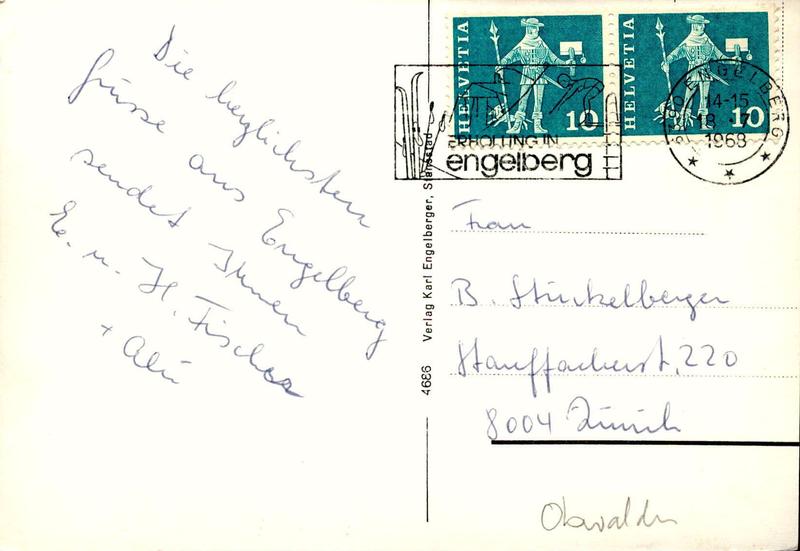 Die herzlichsten
Grüsse aus Engelberg
sendet Ihnen
E. u. H. Fischer
+
Verlag Karl Engelberger, Stansstad
4686
HELVETIA
10
HELVETIA
10
ERHOLUNG IN
engelberg
ENGELBERG
14-15
18.-7
1968
Frau
B. Stückelberger
Stauffacherst. 220
8004 Zürich
Obwalden